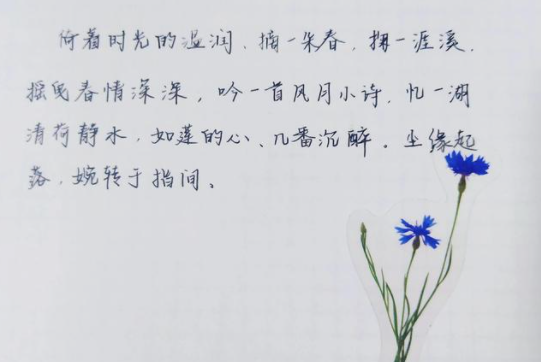 倚着时光的温润、摘一朵春，掬一涯溪、
摇曳春情深深，吟一首风月小诗、忆一湖
清荷静水，如莲的心、几番沉醉。尘缘起
落，婉转于指间、